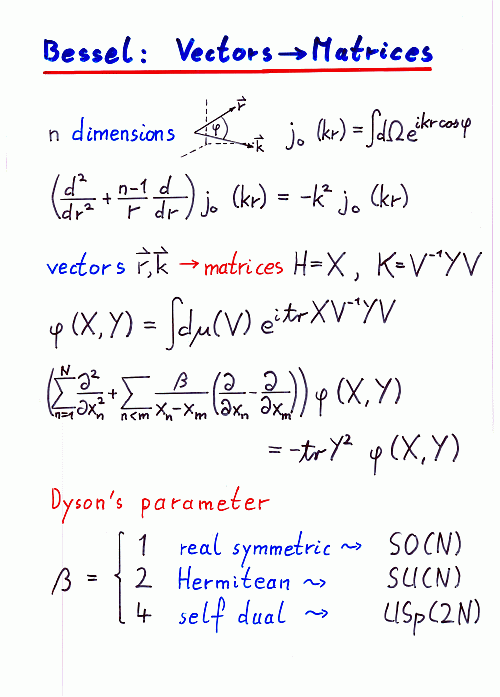 Bessel: Vectors→Matrices
n dimensions φ r⃗ k⃗ j₀ (kr) = ∫dΩ e^{ikr cosφ}
(d²/dr² + n-1/r d/dr) j₀ (kr) = -k² j₀ (kr)
vectors r⃗,k⃗ → matrices H=X, K=V⁻¹YV
φ(X,Y) = ∫dμ(V) e^{i tr XV⁻¹YV}
(∑_{n=1}^{N} ∂²/∂x_n² + ∑_{n<m} β/(x_n-x_m) (∂/∂x_n - ∂/∂x_m)) φ(X,Y)
= -tr Y² φ(X,Y)
Dyson's parameter
β = { 1 real symmetric ⇝ SO(N)
2 Hermitean ⇝ SU(N)
4 self dual ⇝ USp(2N)